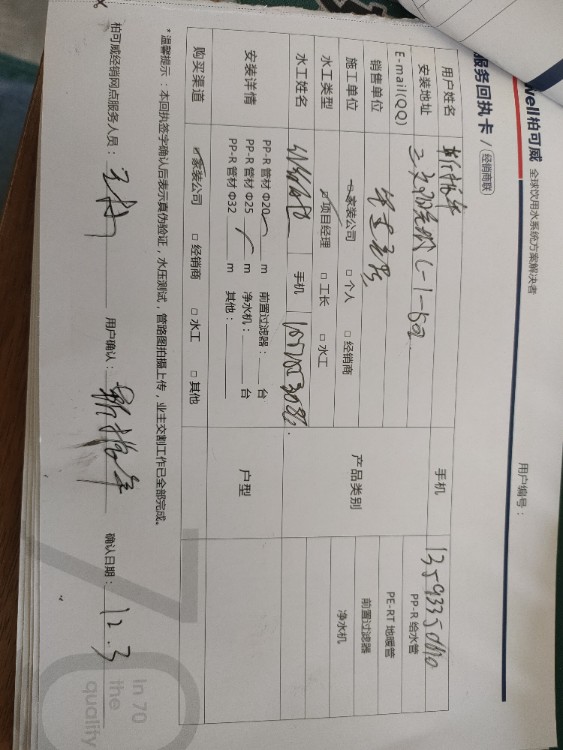 well柏可威 全球饮用水系统方案解决者
服务回执卡 / 经销商联
用户编号：
用户姓名 靳 手机 1359335
安装地址 C-1-502
E-mail(QQ) 产品类别 PP-R 给水管
销售单位 PE-RT 地暖管
施工单位 家装公司 □个人 □经销商 前置过滤器
水工类型 项目经理 □工长 □水工 净水机
水工姓名 手机
安装详情 PP-R 管材 Φ20 m 前置过滤器： 台 户型
PP-R 管材 Φ25 m 净水机： 台
PP-R 管材 Φ32 m 其他：
购买渠道 家装公司 □经销商 □水工 □其他
*温馨提示：本回执签字确认后表示真伪验证，水压测试，管路图拍摄上传，业主交割工作已全部完成。
柏可威经销网点服务人员： 用户确认：靳 确认日期：12.3
In 70
the
quality
70